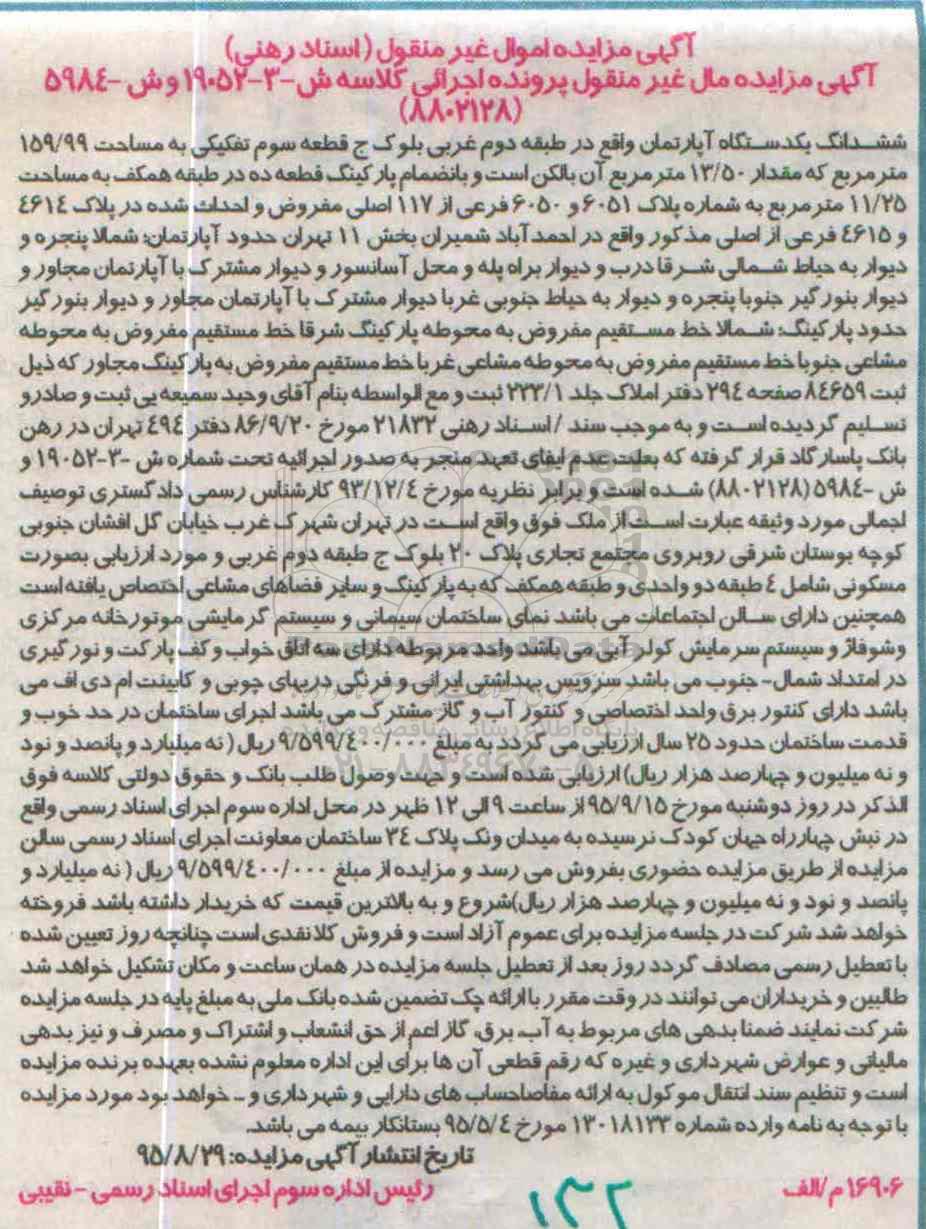 آگهی مزایده اموال غیر منقول (اسناد رهنی)
آگهی مزایده مال غیر منقول پرونده اجرائی کلاسه ش -۳-۱۹۰۵۲ و ش -۵۹۸٤
(۸۸۰۲۱۲۸)
ششدانگ یکدستگاه آپارتمان واقع در طبقه دوم غربی بلوک ج قطعه سوم تفکیکی به مساحت ۱۵۹/۹۹
مترمربع که مقدار ۱۳/۵۰ مترمربع آن بالکن است و بانضمام پارکینگ قطعه ده در طبقه همکف به مساحت
۱۱/۲۵ مترمربع به شماره پلاک ٦۰۵۱ و ٦۰۵۰ فرعی از ۱۱۷ اصلی مفروض و احداث شده در پلاک ٤٦۱٤
و ٤٦۱۵ فرعی از اصلی مذکور واقع در احمدآباد شمیران بخش ۱۱ تهران حدود آپارتمان: شمالا پنجره و
دیوار به حیاط شمالی شرقا درب و دیوار براه پله و محل آسانسور و دیوار مشترک با آپارتمان مجاور و
دیوار بنورگیر جنوبا پنجره و دیوار به حیاط جنوبی غربا دیوار مشترک با آپارتمان مجاور و دیوار بنورگیر
حدود پارکینگ: شمالا خط مستقیم مفروض به محوطه پارکینگ شرقا خط مستقیم مفروض به محوطه
مشاعی جنوبا خط مستقیم مفروض به محوطه مشاعی غربا خط مستقیم مفروض به پارکینگ مجاور که ذیل
ثبت ۸٤٦۵۹ صفحه ۲۹٤ دفتر املاک جلد ۲۳۳/۱ ثبت و مع الواسطه بنام آقای وحید سمیعه یی ثبت و صادر و
تسلیم گردیده است و به موجب سند / اسناد رهنی ۲۱۸۳۲ مورخ ۸٦/۹/۲۰ دفتر ٤۹٤ تهران در رهن
بانک پاسارگاد قرار گرفته که بعلت عدم ایفای تعهد منجر به صدور اجرائیه تحت شماره ش -۳-۱۹۰۵۲ و
ش -۵۹۸٤ (۸۸۰۲۱۲۸) شده است و برابر نظریه مورخ ۹۳/۱۲/٤ کارشناس رسمی دادگستری توصیف
اجمالی مورد وثیقه عبارت است از ملک فوق واقع است در تهران شهرک غرب خیابان گل افشان جنوبی
کوچه بوستان شرقی روبروی مجتمع تجاری پلاک ۲۰ بلوک ج طبقه دوم غربی و مورد ارزیابی بصورت
مسکونی شامل ٤ طبقه دو واحدی و طبقه همکف که به پارکینگ و سایر فضاهای مشاعی اختصاص یافته است
همچنین دارای سالن اجتماعات می باشد نمای ساختمان سیمانی و سیستم گرمایشی موتورخانه مرکزی
وشوفاژ و سیستم سرمایش کولر آبی می باشد واحد مربوطه دارای سه اتاق خواب و کف پارکت و نورگیری
در امتداد شمال- جنوب می باشد سرویس بهداشتی ایرانی و فرنگی دربهای چوبی و کابینت ام دی اف می
باشد دارای کنتور برق واحد اختصاصی و کنتور آب و گاز مشترک می باشد اجرای ساختمان در حد خوب و
قدمت ساختمان حدود ۲۵ سال ارزیابی می گردد به مبلغ ۹/۵۹۹/٤۰۰/۰۰۰ ریال ( نه میلیارد و پانصد و نود
و نه میلیون و چهارصد هزار ریال) ارزیابی شده است و جهت وصول طلب بانک و حقوق دولتی کلاسه فوق
الذکر در روز دوشنبه مورخ ۹۵/۹/۱۵ از ساعت ۹ الی ۱۲ ظهر در محل اداره سوم اجرای اسناد رسمی واقع
در نبش چهارراه جهان کودک نرسیده به میدان ونک پلاک ۳٤ ساختمان معاونت اجرای اسناد رسمی سالن
مزایده از طریق مزایده حضوری بفروش می رسد و مزایده از مبلغ ۹/۵۹۹/٤۰۰/۰۰۰ ریال ( نه میلیارد و
پانصد و نود و نه میلیون و چهارصد هزار ریال)شروع و به بالاترین قیمت که خریدار داشته باشد فروخته
خواهد شد شرکت در جلسه مزایده برای عموم آزاد است و فروش کلا نقدی است چنانچه روز تعیین شده
با تعطیل رسمی مصادف گردد روز بعد از تعطیل جلسه مزایده در همان ساعت و مکان تشکیل خواهد شد
طالبین و خریداران می توانند در وقت مقرر با ارائه چک تضمین شده بانک ملی به مبلغ پایه در جلسه مزایده
شرکت نمایند ضمنا بدهی های مربوط به آب، برق، گاز اعم از حق انشعاب و اشتراک و مصرف و نیز بدهی
مالیاتی و عوارض شهرداری و غیره که رقم قطعی آن ها برای این اداره معلوم نشده بعهده برنده مزایده
است و تنظیم سند انتقال موکول به ارائه مفاصاحساب های دارایی و شهرداری و ... خواهد بود مورد مزایده
با توجه به نامه وارده شماره ۱۳۰۱۸۱۳۳ مورخ ۹۵/۵/٤ بستانکار بیمه می باشد.
تاریخ انتشار آگهی مزایده: ۹۵/۸/۲۹
۱٦۹۰٦ م/الف
رئیس اداره سوم اجرای اسناد رسمی - نقیبی
۱۳۲